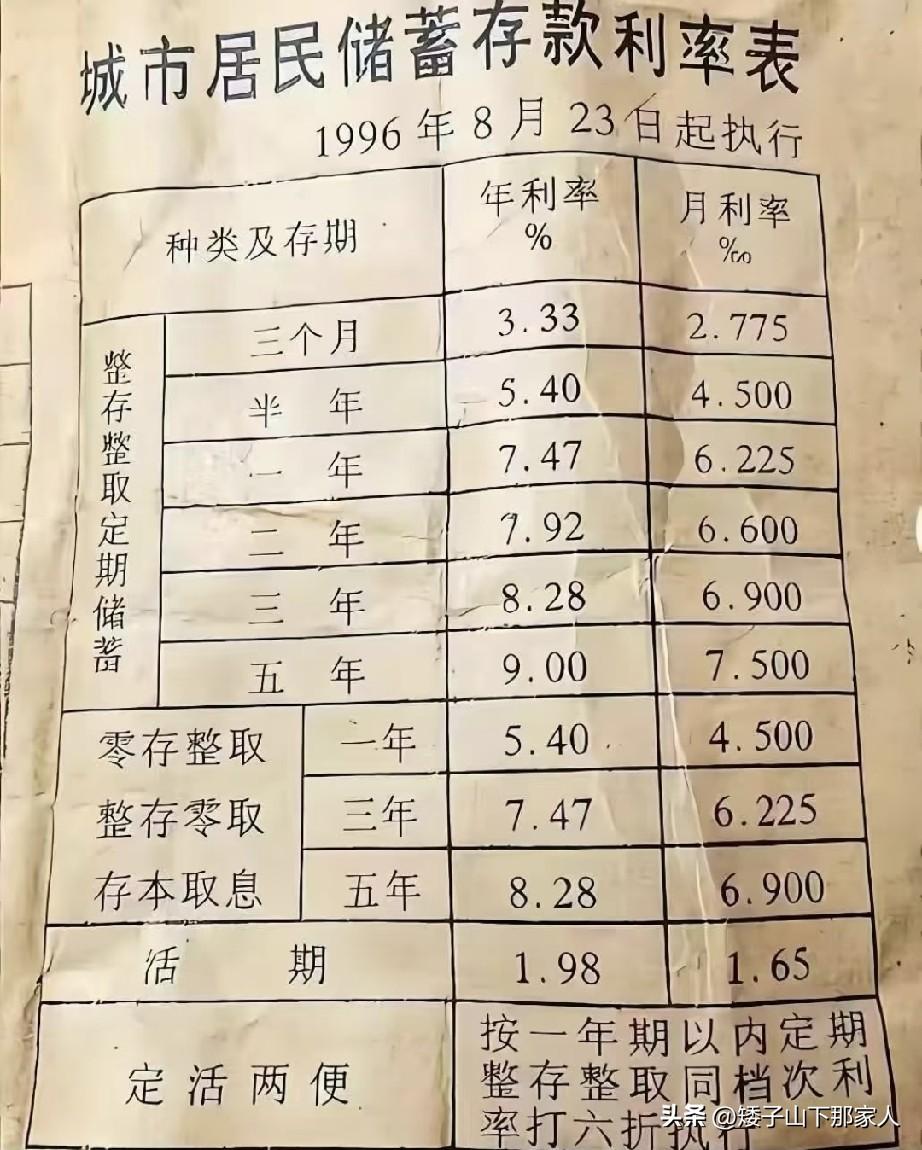 城市居民储蓄存款利率表
1996年8月23日起执行
种类及存期 年利率% 月利率‰
整存整取定期储蓄
三个月 3.33 2.775
半年 5.40 4.500
一年 7.47 6.225
二年 7.92 6.600
三年 8.28 6.900
五年 9.00 7.500
零存整取 一年 5.40 4.500
整存零取 三年 7.47 6.225
存本取息 五年 8.28 6.900
活期 1.98 1.65
定活两便
按一年期以内定期
整存整取同档次利
率打六折执行
头条 @矮子山下那家人